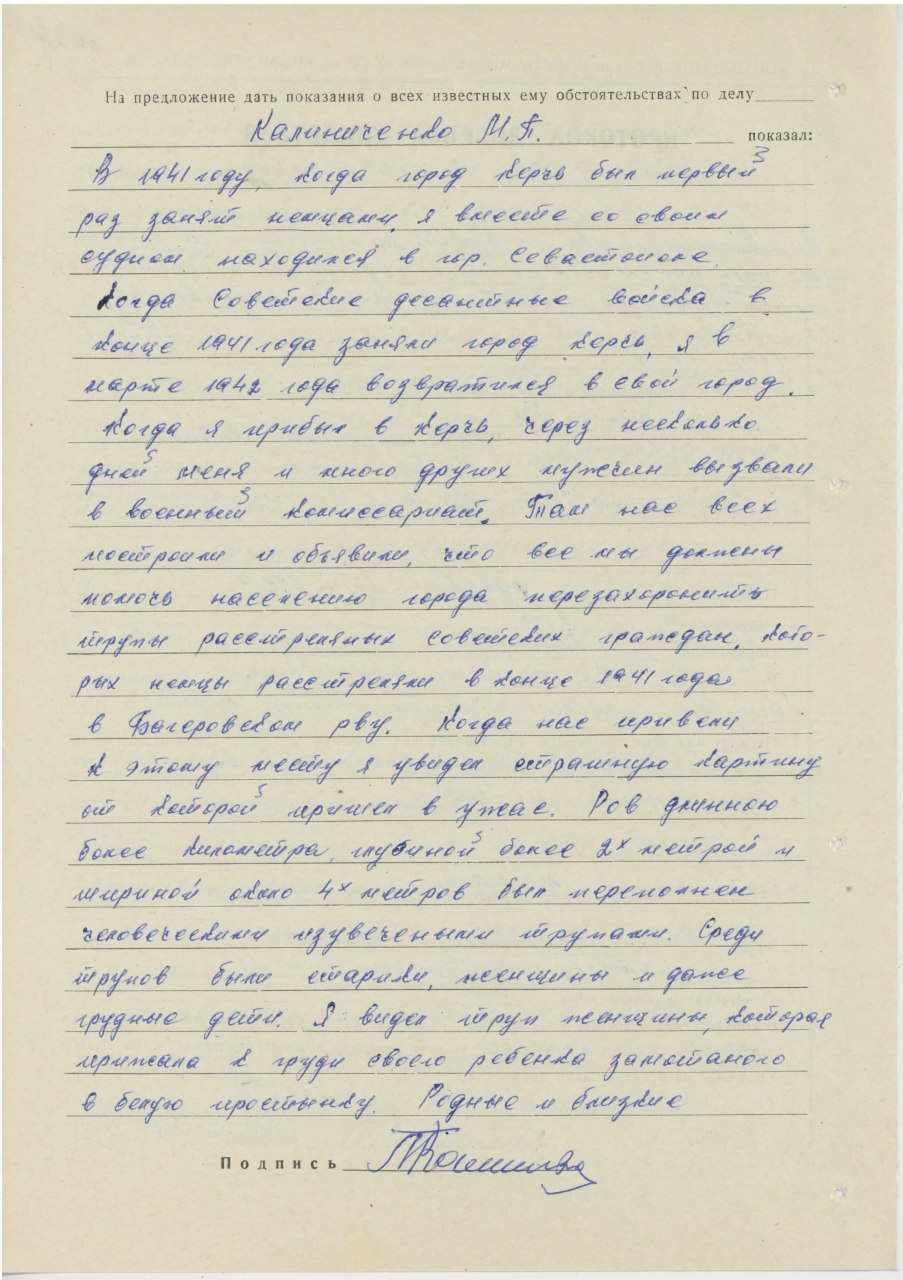 На предложение дать показания о всех известных ему обстоятельствах по делу
Калиниченко М.П. показал:
В 1941 году, когда город Керчь был первый
раз занят немцами, я вместе со своим
судном находился в гор. Севастополе.
Когда Советские десантные войска в
конце 1941 года заняли город Керчь, я в
марте 1942 года возвратился в свой город.
Когда я прибыл в Керчь, через несколько
дней меня и много других мужчин вызвали
в военный комиссариат. Там нас всех
построили и объявили, что все мы должны
помочь населению города перезахоронить
трупы расстреляных советских граждан, кото-
рых немцы расстреляли в конце 1941 года
в Багеровском рву. Когда нас привели
к этому месту я увидел страшную картину
от которой пришел в ужас. Ров длинною
более километра, глубиной более 2х метрой и
шириной около 4х метров был переполнен
человеческими изувечеными трупами. Среди
трупов были старики, женщины и даже
грудные дети. Я видел труп женщины, которая
прижала к груди своего ребенка замотаного
в белую простынку. Родные и близкие
Подпись